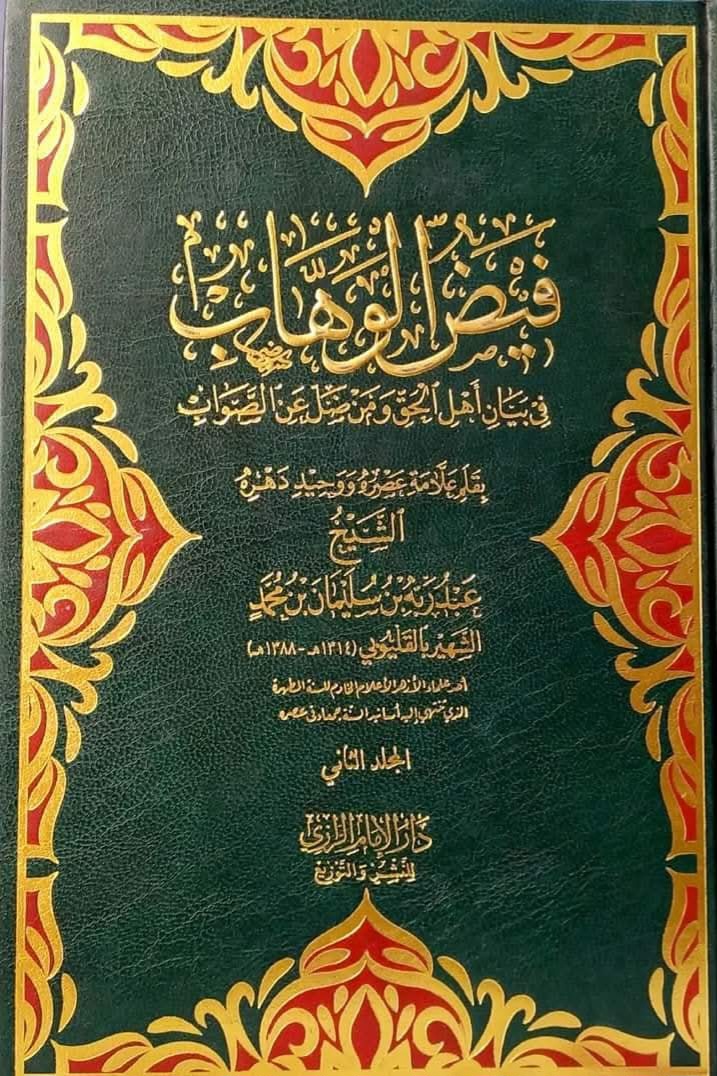 فَيْضُ الْوَهَّابِ
فِي بَيَانِ أَهْلِ الْحَقِّ وَمَنْ ضَلَّ عَنِ الصَّوَابِ
بِقَلَمِ عَلَّامَةِ عَصْرِهِ وَوَحِيدِ دَهْرِهِ
الشَّيْخُ
عَبْدُ رَبِّهِ بْنُ سُلَيْمَانَ بْنِ مُحَمَّدٍ
الشهير بالقليوبي (١٣١٤هـ - ١٣٨٨هـ)
أحد علماء الأزهر الأعلام الخادم للسنة المطهرة
الذي تنتهي إليه أسانيد السنة بجهاد في عصره
المجلد الثاني
دَارُ الْإِمَامِ الرَّازِي
لِلنَّشْرِ وَالتَّوْزِيْعِ